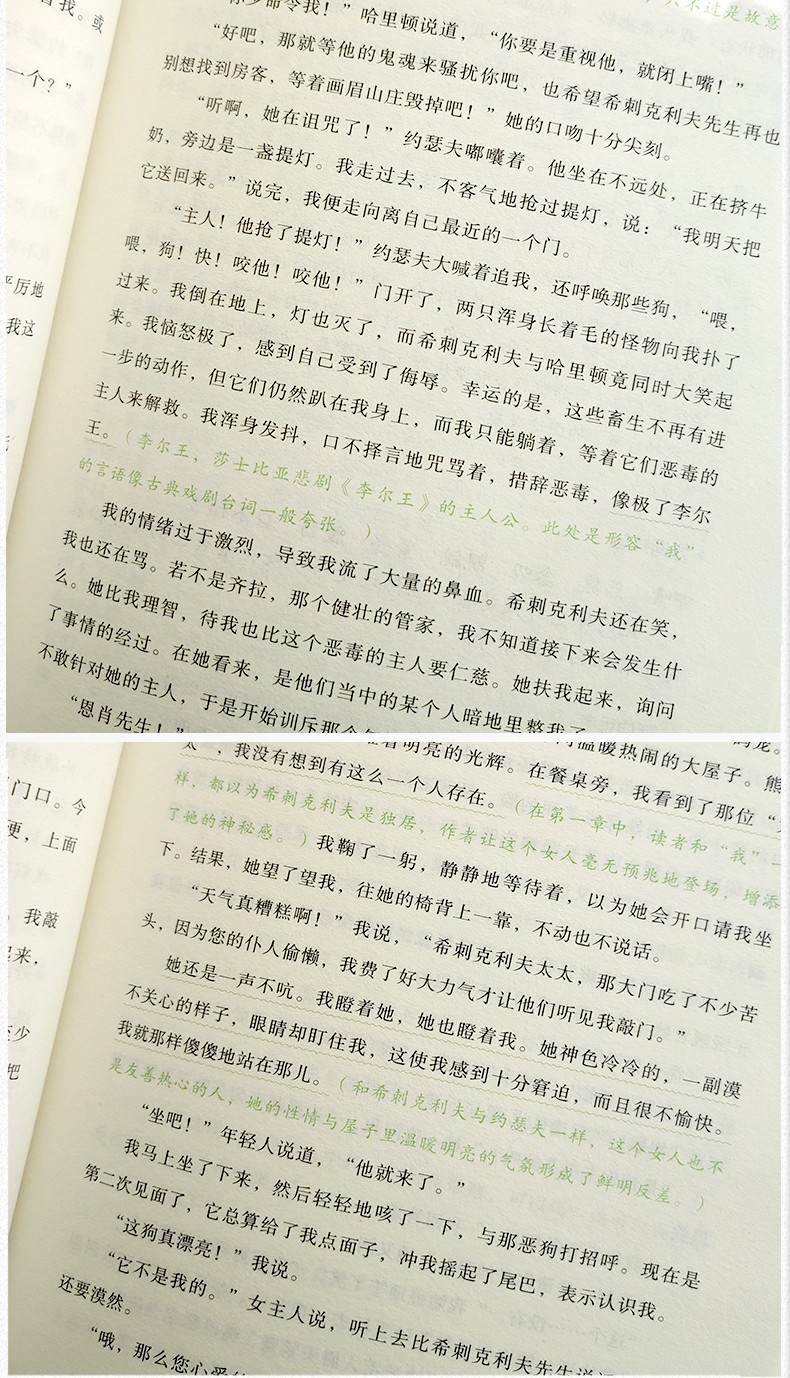 只不过是故意
少命令我！”哈里顿说道，“你要是重视他，就闭上嘴！”
“好吧，那就等他的鬼魂来骚扰你吧，也希望希刺克利夫先生再也
别想找到房客，等着画眉山庄毁掉吧！”她的口吻十分尖刻。
“听啊，她在诅咒了！”约瑟夫嘟囔着。他坐在不远处，正在挤牛
奶，旁边是一盏提灯。我走过去，不客气地抢过提灯，说：“我明天把
它送回来。”说完，我便走向离自己最近的一个门。
“主人！他抢了提灯！”约瑟夫大喊着追我，还呼唤那些狗，“喂，
喂，狗！快！咬他！咬他！”门开了，两只浑身长着毛的怪物向我扑了
过来。我倒在地上，灯也灭了，而希刺克利夫与哈里顿竟同时大笑起
来。我恼怒极了，感到自己受到了侮辱。幸运的是，这些畜生不再有进
一步的动作，但它们仍然趴在我身上，而我只能躺着，等着它们恶毒的
主人来解救。我浑身发抖，口不择言地咒骂着，措辞恶毒，像极了李尔
王。（李尔王，莎士比亚悲剧《李尔王》的主人公。此处是形容“我”
的言语像古典戏剧台词一般夸张。）
我的情绪过于激烈，导致我流了大量的鼻血。希刺克利夫还在笑，
我也还在骂。若不是齐拉，那个健壮的管家，我不知道接下来会发生什
么。她比我理智，待我也比这个恶毒的主人要仁慈。她扶我起来，询问
了事情的经过。在她看来，是他们当中的某个人暗地里整我了
不敢针对她的主人，于是开始训斥那个
“恩肖先生！”
我。或
一个？”
严厉地
我这
明亮的光辉。在餐桌旁，我看到了那位“
温暖热闹的大屋子。熊
太”，我没有想到有这么一个人存在。（在第一章中，读者和“我”一
样，都以为希刺克利夫是独居，作者让这个女人毫无预兆地登场，增添
了她的神秘感。）我鞠了一躬，静静地等待着，以为她会开口请我坐
下。结果，她望了望我，往她的椅背上一靠，不动也不说话。
“天气真糟糕啊！”我说，“希刺克利夫太太，那大门吃了不少苦
头，因为您的仆人偷懒，我费了好大力气才让他们听见我敲门。”
她还是一声不吭。我瞪着她，她也瞪着我。她神色冷冷的，一副漠
不关心的样子，眼睛却盯住我，这使我感到十分窘迫，而且很不愉快。
我就那样傻傻地站在那儿。（和希刺克利夫与约瑟夫一样，这个女人也不
是友善热心的人，她的性情与屋子里温暖明亮的气氛形成了鲜明反差。）
“坐吧！”年轻人说道，“他就来了。”
我马上坐了下来，然后轻轻地咳了一下，与那恶狗打招呼。现在是
第二次见面了，它总算给了我点面子，冲我摇起了尾巴，表示认识我。
“这狗真漂亮！”我说。
“它不是我的。”女主人说，听上去比希刺克利夫先生说
还要漠然。
“哦，那么您心爱的
门口。今
便，上面
，我敲
起来，
至少
把